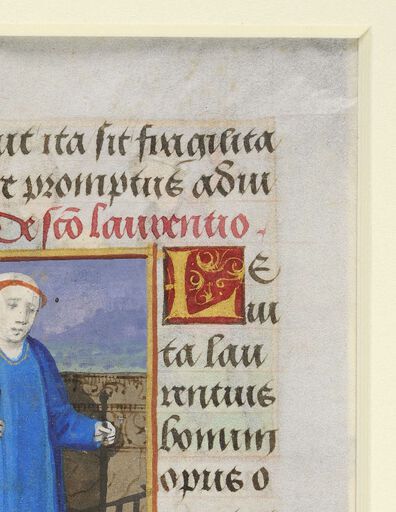 ut ita sit fragilita
r promptus adiu
De sco laurentio.
LE
ui
ta lau
rentius
bonum
opus o